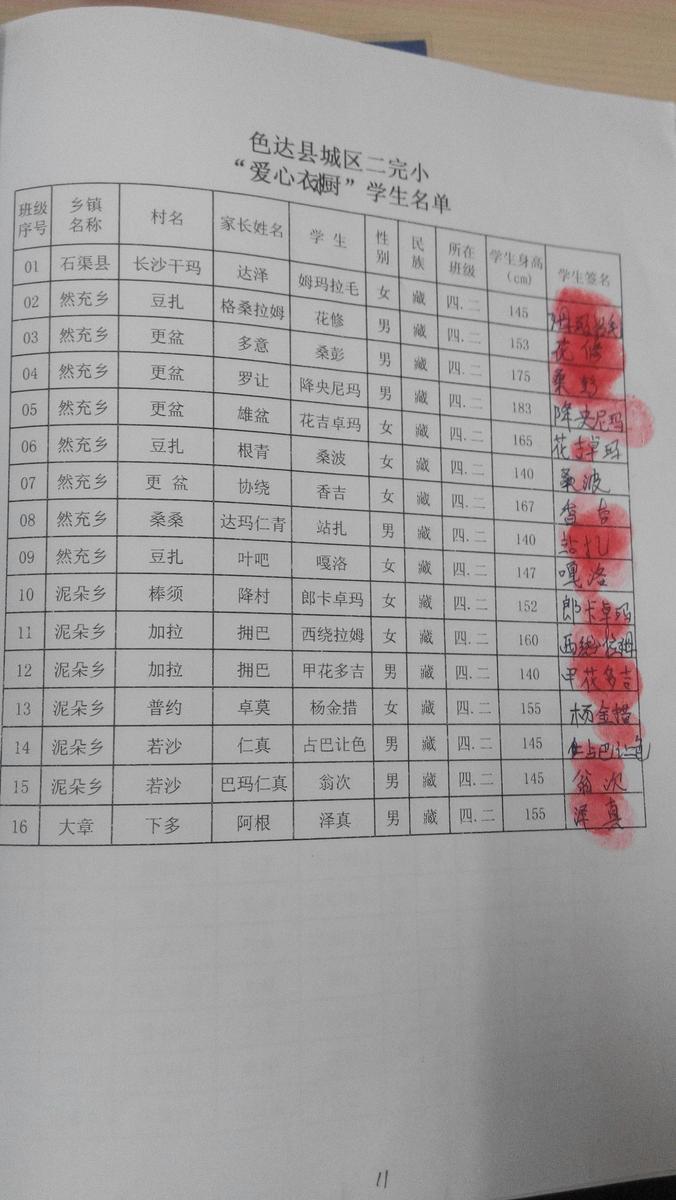 色达县城区二完小
“爱心衣橱”学生名单
班级序号 乡镇名称 村名 家长姓名 学生 性别 民族 所在班级 学生身高(cm) 学生签名
01 石渠县 长沙干玛 达泽 姆玛拉毛 女 藏 四.二 145
02 然充乡 豆扎 格桑拉姆 花修 男 藏 四.二 153 花修
03 然充乡 更盆 多意 桑彭 男 藏 四.二 175 桑彭
04 然充乡 更盆 罗让 降央尼玛 男 藏 四.二 183 降央尼玛
05 然充乡 更盆 雄盆 花吉卓玛 女 藏 四.二 165 花吉卓玛
06 然充乡 豆扎 根青 桑波 女 藏 四.二 140 桑波
07 然充乡 更盆 协绕 香吉 女 藏 四.二 167 香吉
08 然充乡 桑桑 达玛仁青 站扎 男 藏 四.二 140 站扎
09 然充乡 豆扎 叶吧 嘎洛 女 藏 四.二 147 嘎洛
10 泥朵乡 棒须 降村 郎卡卓玛 女 藏 四.二 152 郎卡卓玛
11 泥朵乡 加拉 拥巴 西绕拉姆 女 藏 四.二 160 西绕拉姆
12 泥朵乡 加拉 拥巴 甲花多吉 男 藏 四.二 140 甲花多吉
13 泥朵乡 普约 卓莫 杨金措 女 藏 四.二 155 杨金措
14 泥朵乡 若沙 仁真 占巴让色 男 藏 四.二 145 占巴让色
15 泥朵乡 若沙 巴玛仁真 翁次 男 藏 四.二 145 翁次
16 大章 下多 阿根 泽真 男 藏 四.二 155 泽真
11